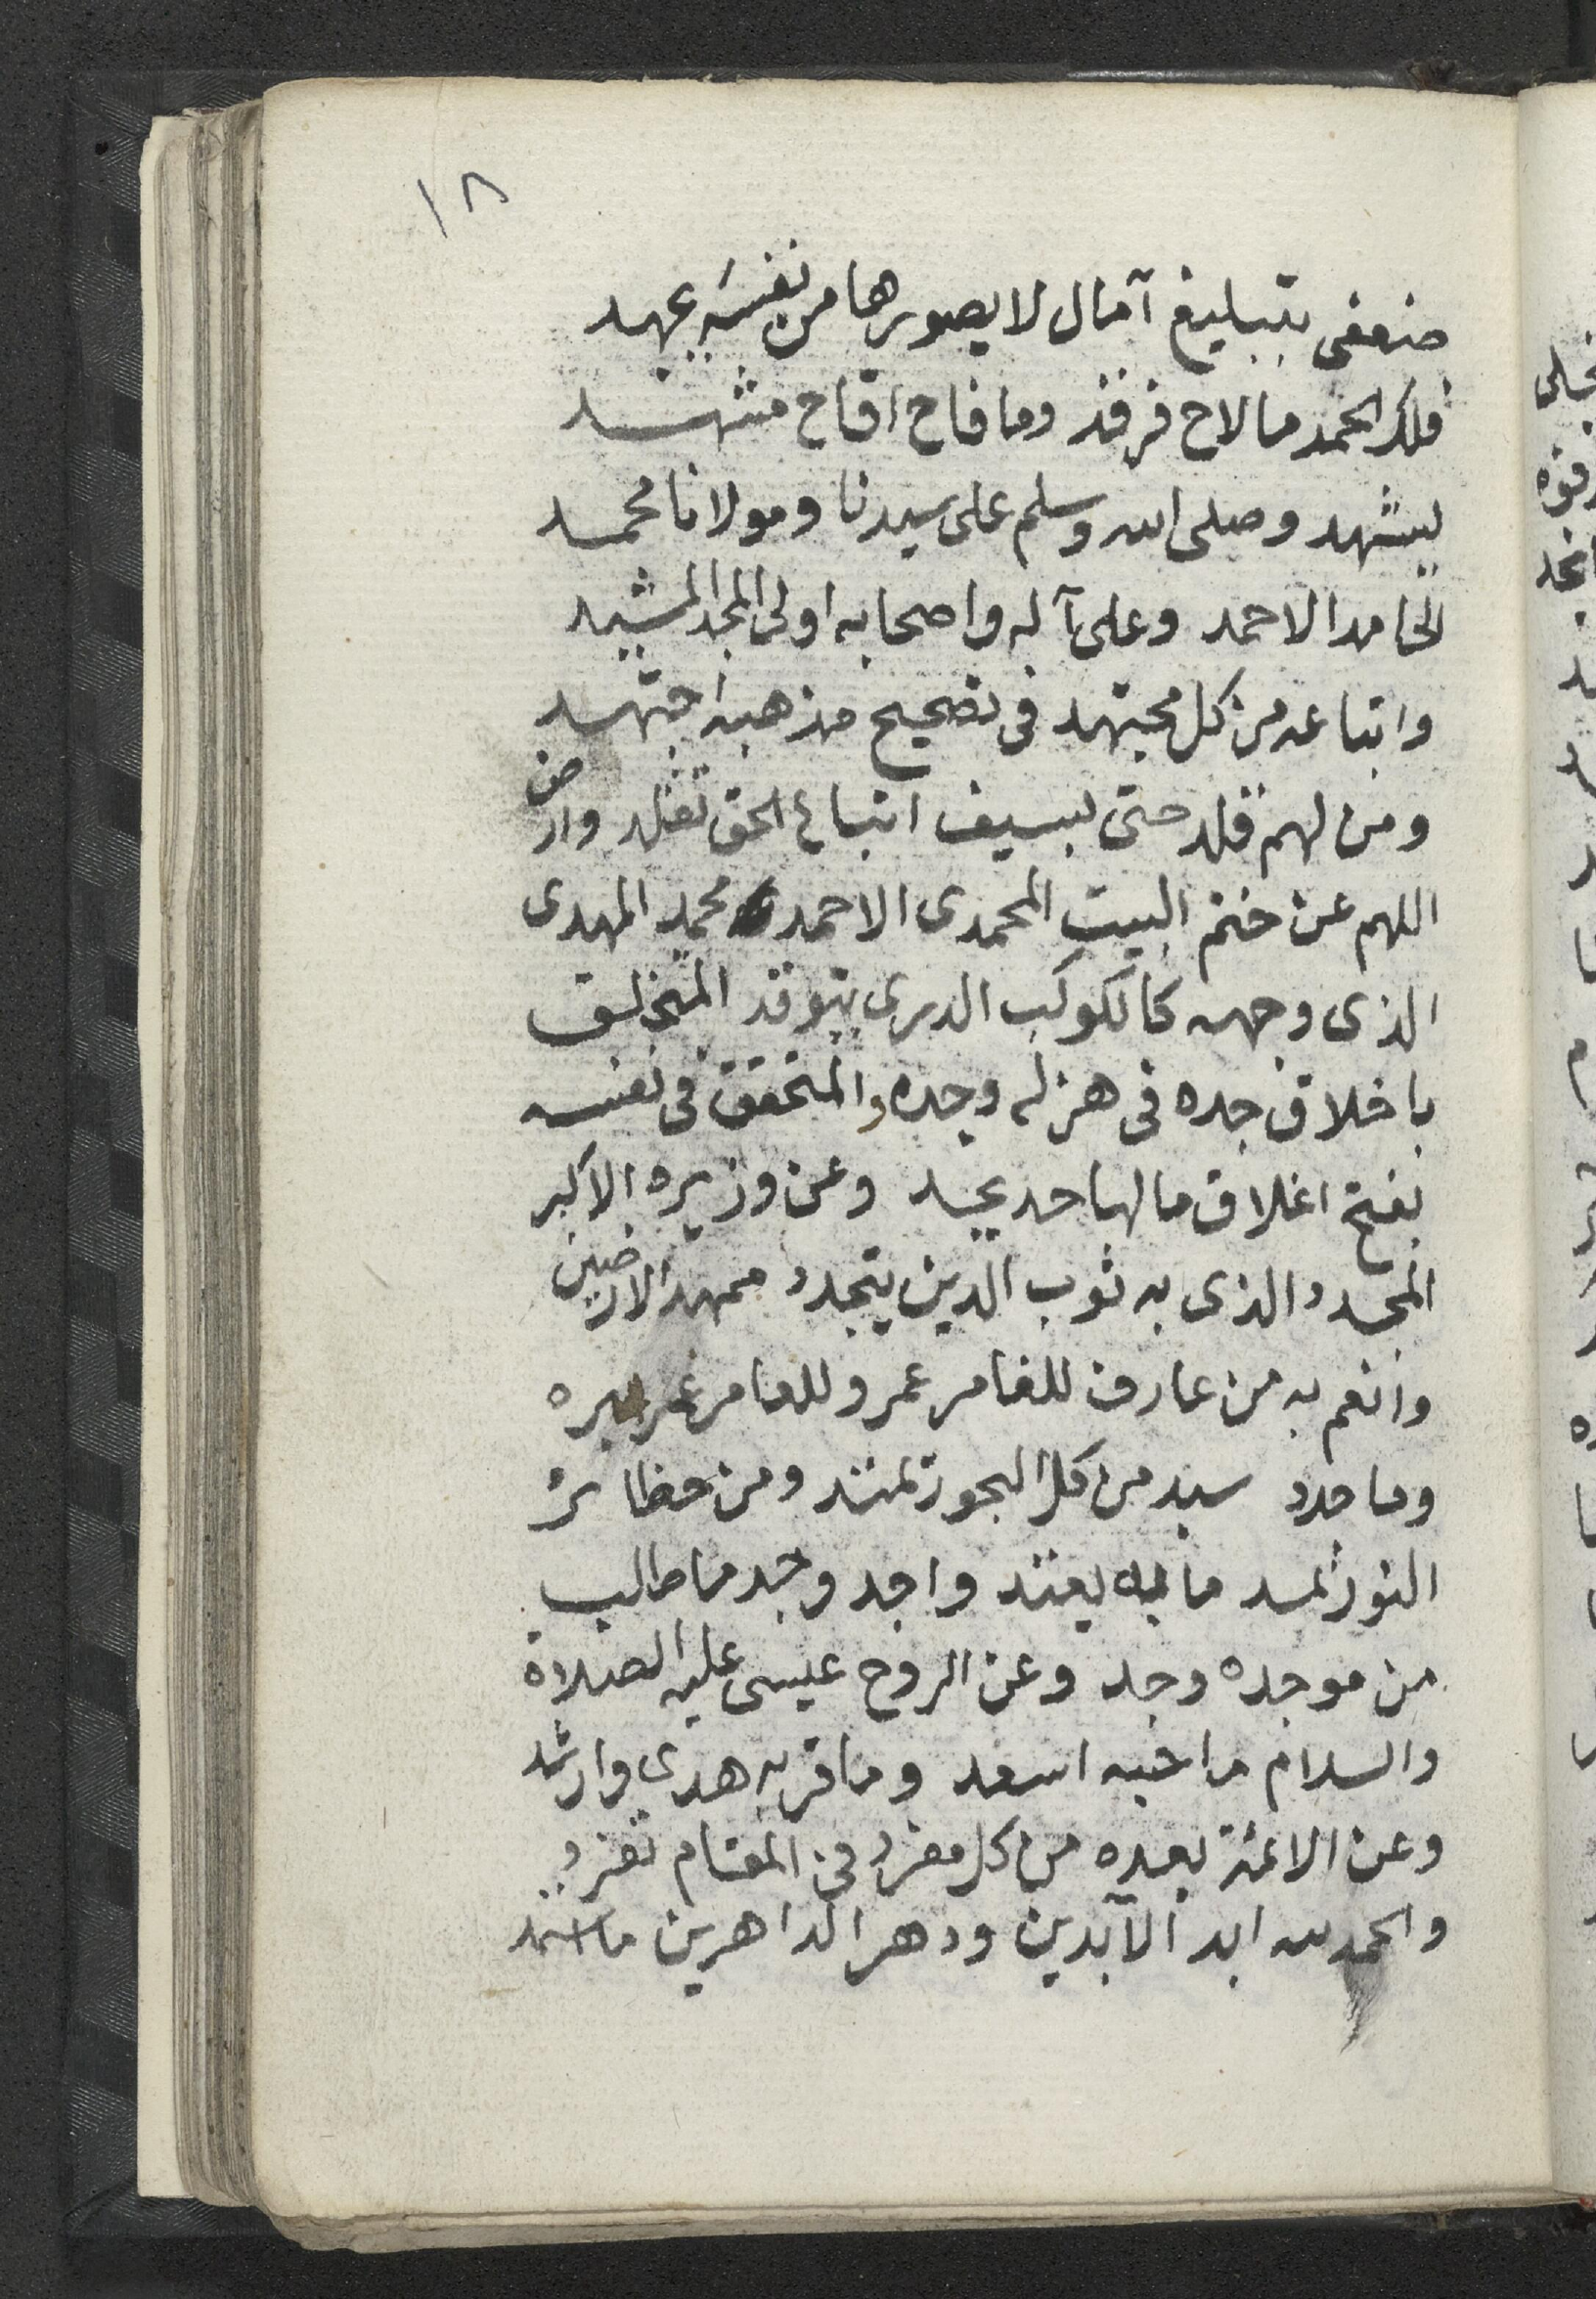 ١٨
ضعفى بتبليغ آمال لا يصورها من نفسه عهد
فلك الحمد ما لاح فرقد وما فاح اقاح مشهد
ليشهد وصلى الله وسلم على سيدنا ومولانا محمد
الحامد الاحمد وعلى آله واصحابه اولى المجد المشيد
واتباعه من كل مجتهد فى تصحيح مذهبه اجتهد
ومن لهم قلد حتى بسيف اتباع الحق تقلد وارض
اللهم عن ختم البيت المحمدى الاحمد محمد المهدى
الذى وجهه كالكوكب الدرى يتوقد المتخلق
باخلاق جده فى هزله وجده والمتحقق فى نفسه
بفتح اغلاق مالها حد يحد وعن وزيره الاكبر
المجدد الذى به ثوب الدين يتجدد ممهد الارضين
وانعم به من عارف للغامر عمر وللعامر غيره
وما جدد سيد من كل البحور تمتد ومن حظائر
النور تمد ما به يعتد واجد وجد ما طالب
من موجده وجد وعن الروح عيسى عليه الصلاة
والسلام ما حبه اسعد وما قربه هدى وارشد
وعن الائمة بعده من كل مفرد فى المقام تفرد
والحمد لله ابد الآبدين ودهر الداهرين ما